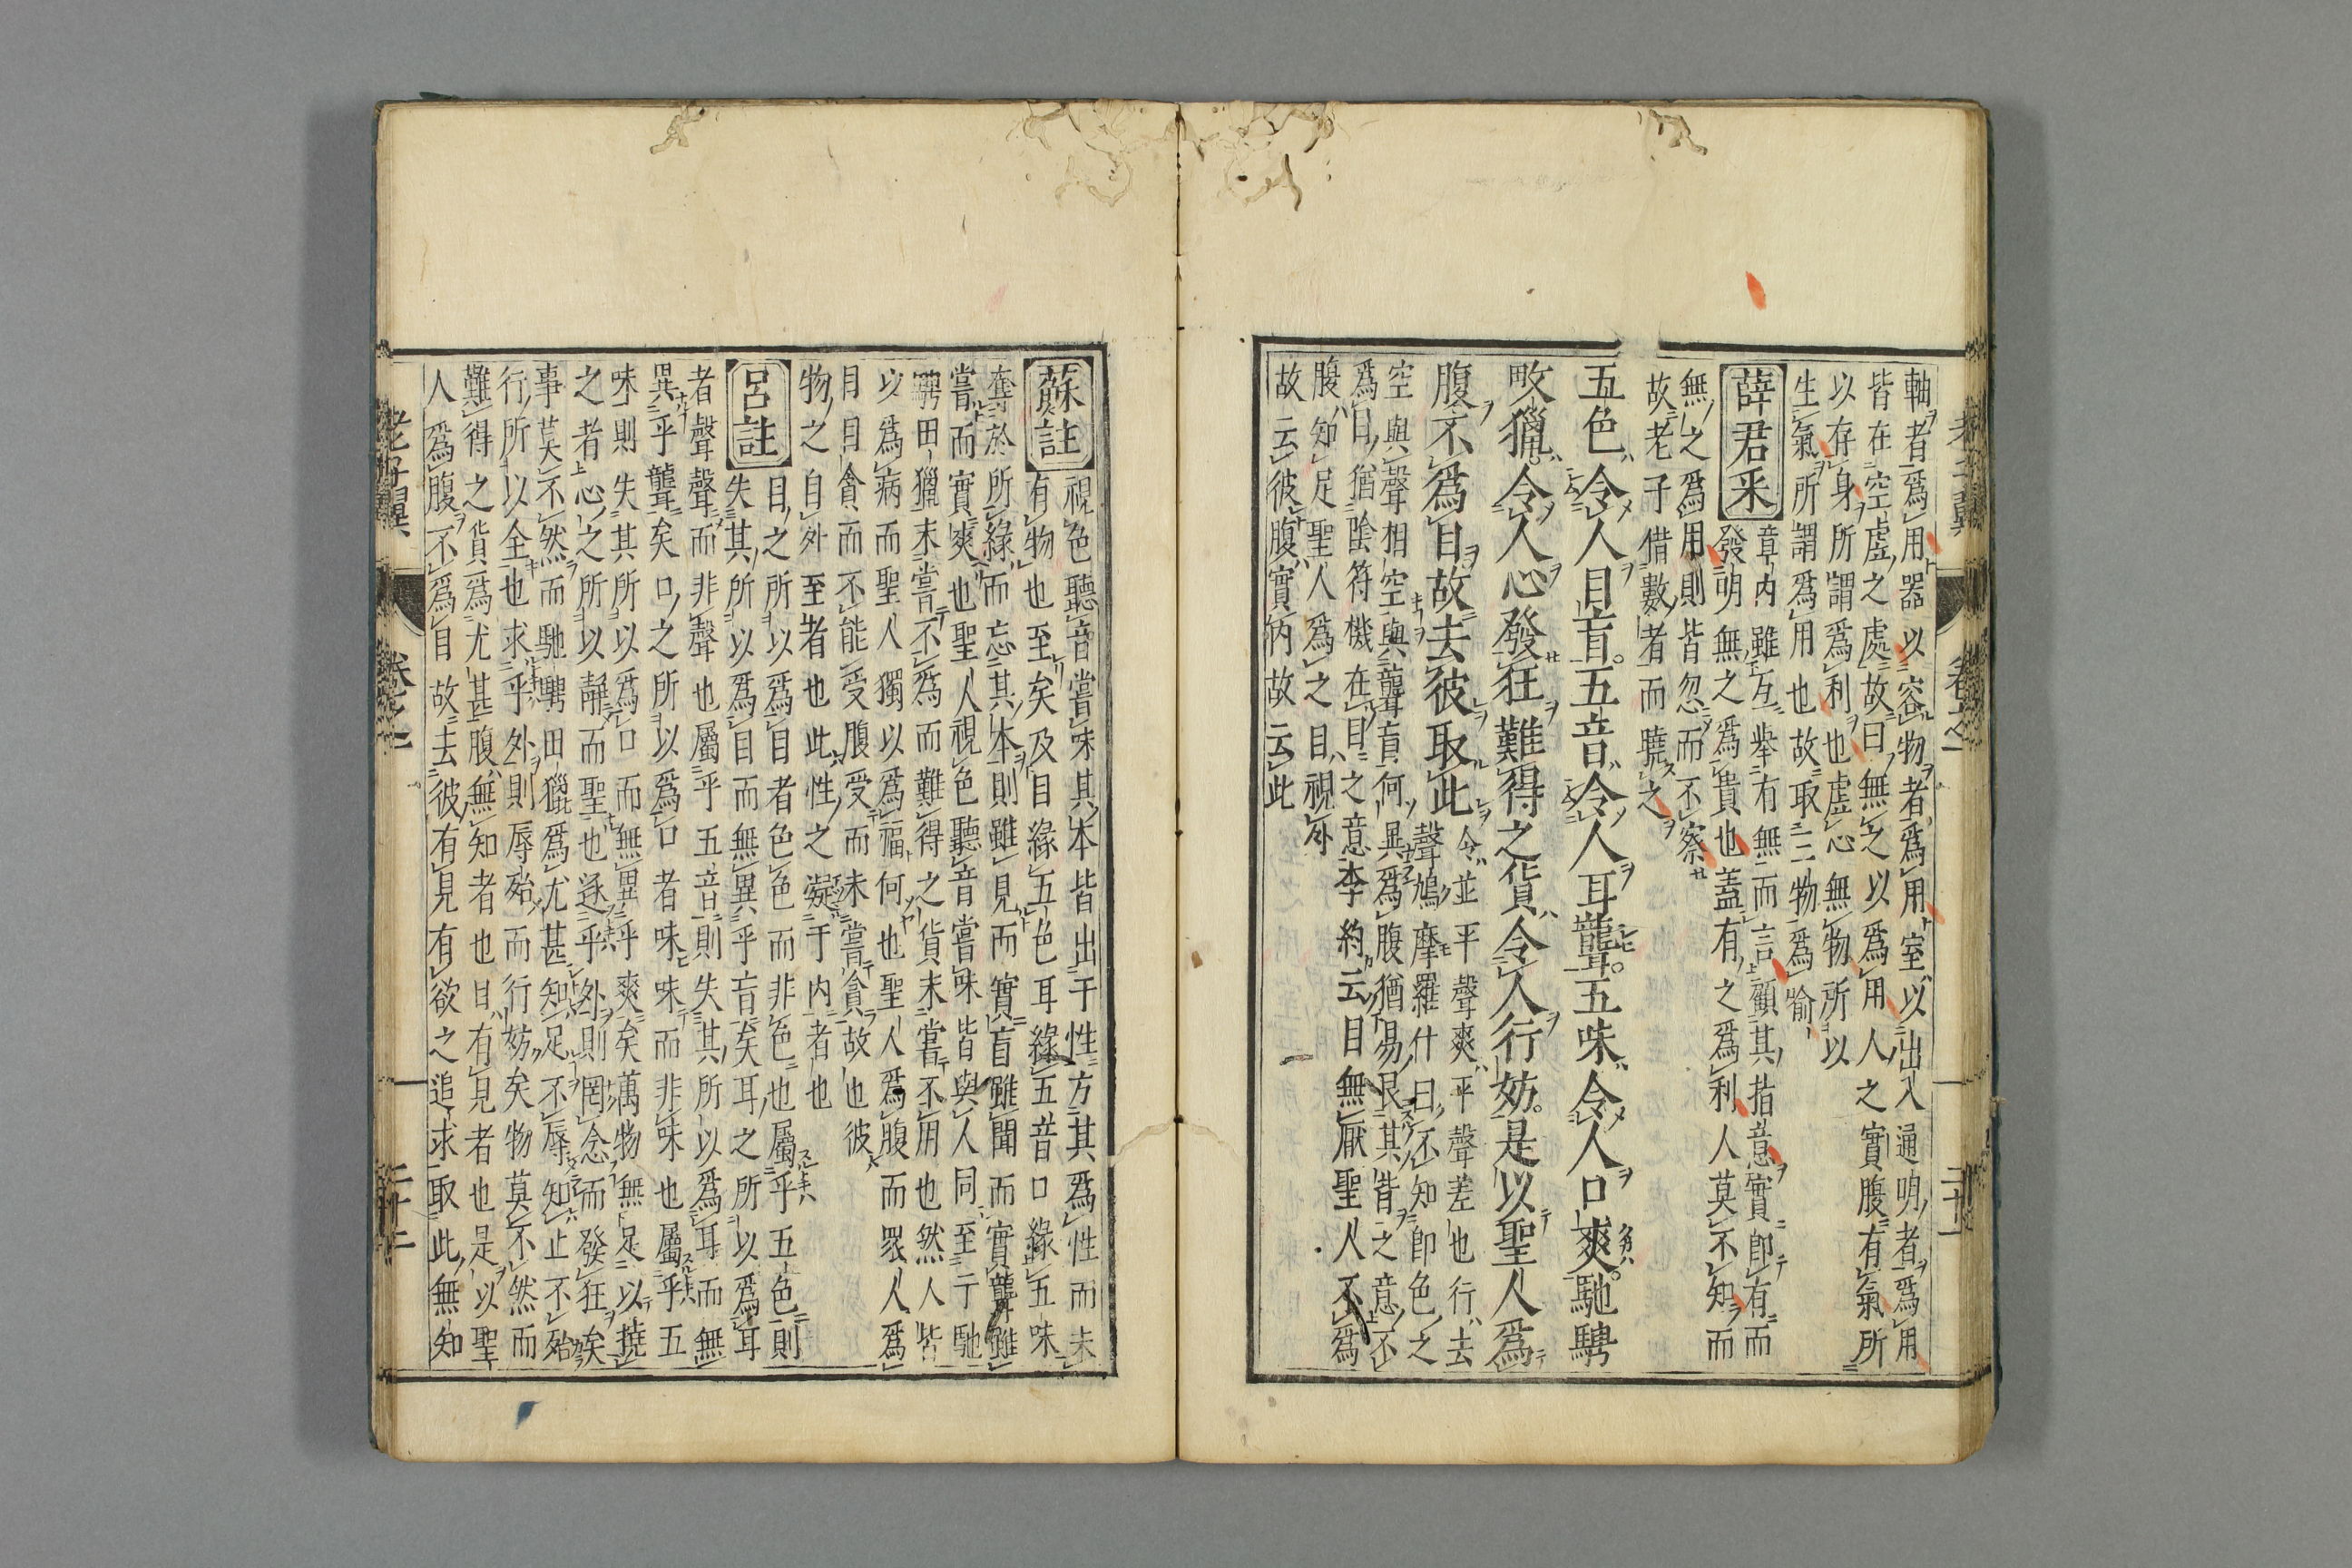 軸者爲用器以容物者爲用室以出入通明者爲用
皆在空虛之處故曰無之以爲用人之實腹有氣所
以存身所謂爲利也虛心無物所以
生氣所謂爲用也故取二物爲喻
薛君采
章内雖互舉有無而言顧其指意實即有而
發明無之爲貴也蓋有之爲利人莫不知而
無之爲用則皆忽而不察
故老子借數者而曉之
五色令人目盲五音令人耳聾五味令人口爽馳騁
畋獵令人心發狂難得之貨令人行妨是以聖人爲
腹不爲目故去彼取此
令並平聲爽平聲差也行去
聲鳩摩羅什曰不知即色之
空與聲相空與聾盲何異爲腹猶易艮其背之意不
爲目猶陰符機在目之意李約云目無厭聖人不爲
腹知足聖人爲之目視外
故云彼腹實内故云此
蘇註
視色聽音嘗味其本皆出于性方其爲性而未
有物也至矣及目緣五色耳緣五音口緣五味
奪於所緣而忘其本則雖見而實盲雖聞而實聾雖
嘗而實爽也聖人視色聽音嘗味皆與人同至于馳
騁田獵未嘗不爲而難得之貨未嘗不用也然人皆
以爲病而聖人獨以爲福何也聖人爲腹而眾人爲
目目貪而不能受腹受而未嘗貪故也彼
物之自外至者也此性之凝于内者也
呂註
目之所以爲目者色色而非色也屬乎五色則
失其所以爲目而無異乎盲矣耳之所以爲耳
者聲聲而非聲也屬乎五音則失其所以爲耳而無
異乎聾矣口之所以爲口者味味而非味也屬乎五
味則失其所以爲口而無異乎爽矣萬物無足以撓
之者心之所以靜而聖也逐乎外則罔念而發狂矣
事莫不然而馳騁田獵爲尤甚知足不辱知止不殆
行所以全也求乎外則辱殆而行妨矣物莫不然而
難得之貨爲尤甚腹無知者也目有見者也是以聖
人爲腹不爲目故去彼有見有欲之追求取此無知
老子翼
卷之一
二十一
老子翼
卷之一
二十二